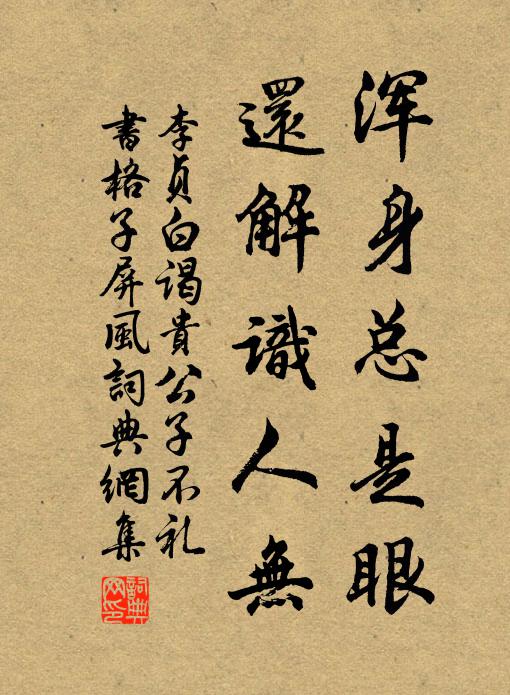 浑身总是眼
還解識人無
李貞白謁貴公子不礼
書格子屏風詞典網集